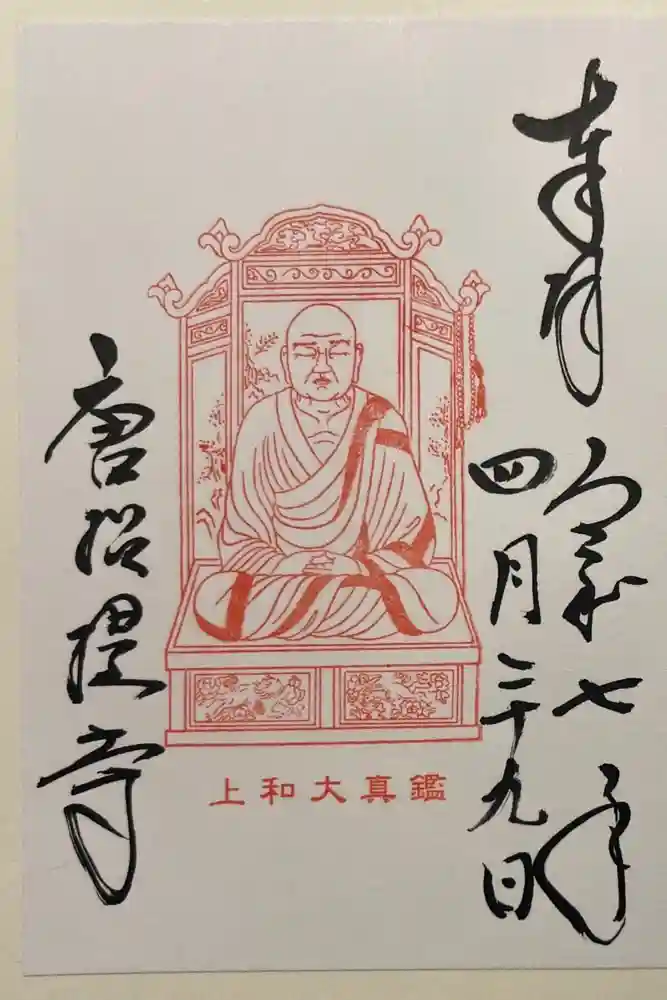 奉拝 令和七年
四月二十九日
鑑真大和上
唐招提寺